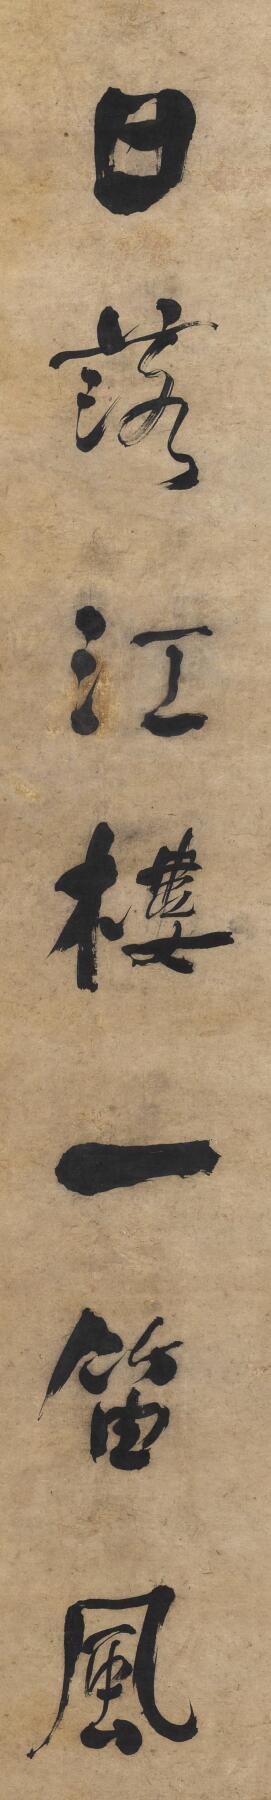 日落江樓一笛風